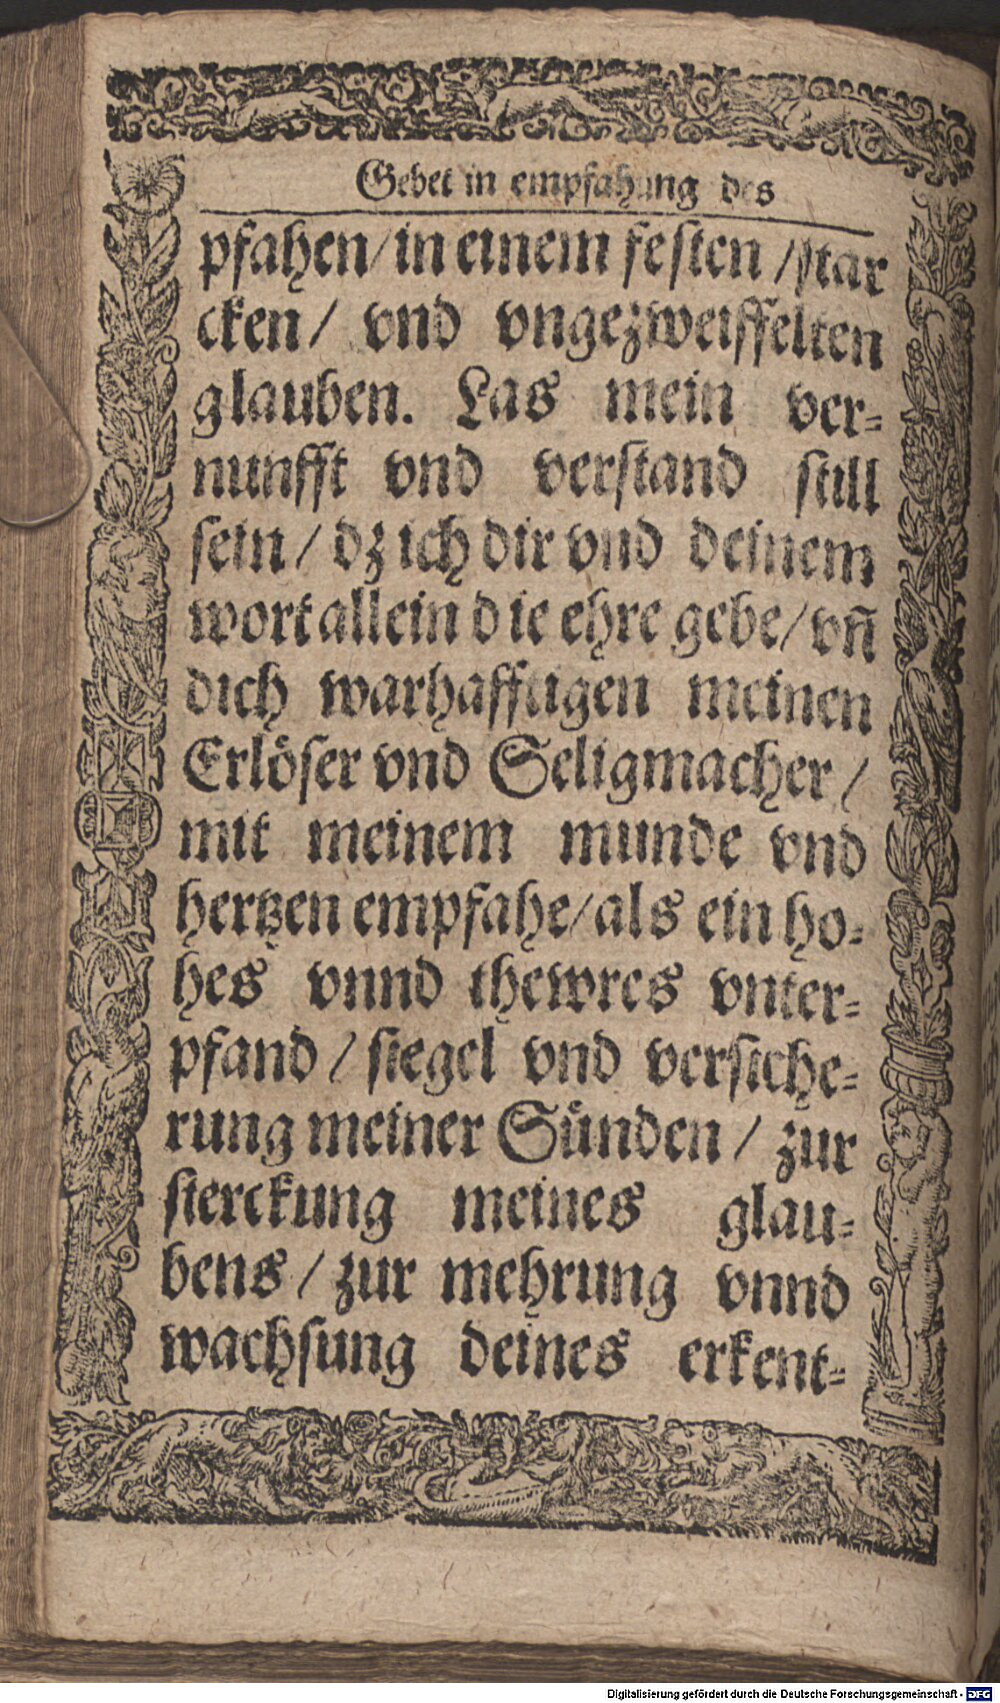 Gebet in empfahung des
pfahen/ in einem festen /star
cken/ vnd vngezweiffelten
glauben. Las mein ver-
nunfft vnd verstand still
sein/ dz ich dir vnd deinem
wort allein die ehre gebe/ vñ
dich warhafftigen meinen
Erlöser vnd Seligmacher/
mit meinem munde vnd
hertzen empfahe/ als ein ho-
hes vnnd thewres vnter-
pfand/ siegel vnd versiche-
rung meiner Sünden/ zur
sterckung meines glau-
bens/ zur mehrung vnnd
wachsung deines erkent-
Digitalisierung gefördert durch die Deutsche Forschungsgemeinschaft - DFG